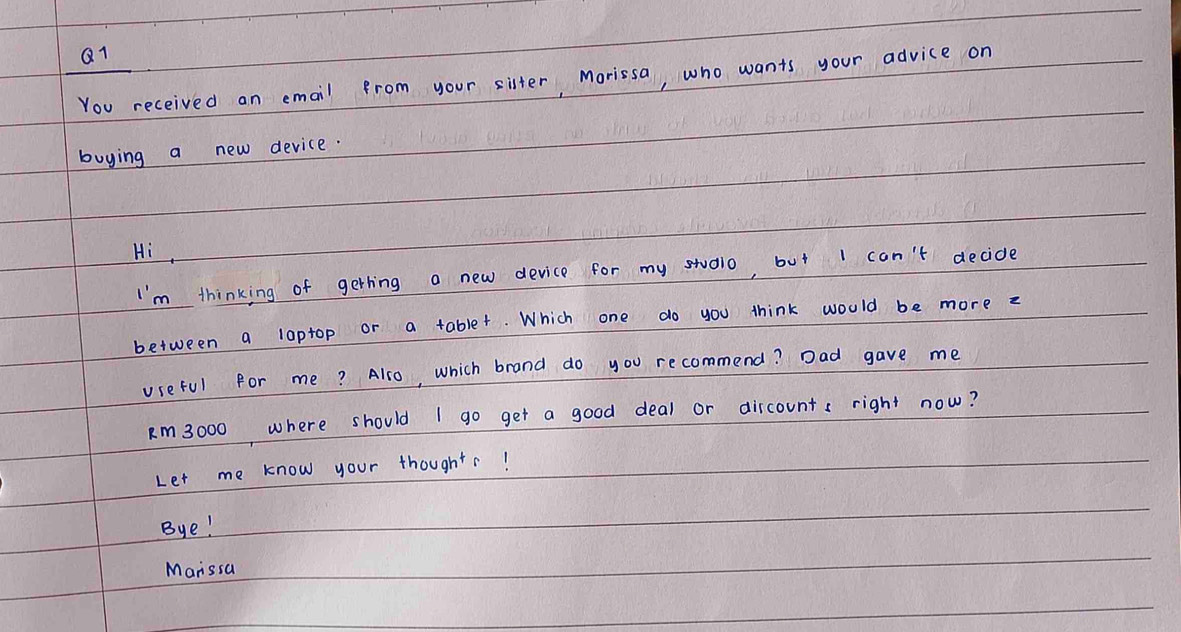 Q1
You received an email from your sister, Marissa, who wants your advice on
buying a new device.
Hi,
I'm thinking of getting a new device for my studio, but I can't decide
between a laptop or a tablet. Which one do you think would be more
useful for me? Also, which brand do you recommend? Dad gave me
RM3000, where should I go get a good deal or discounts right now?
Let me know your thoughts!
Bye!
Marissa